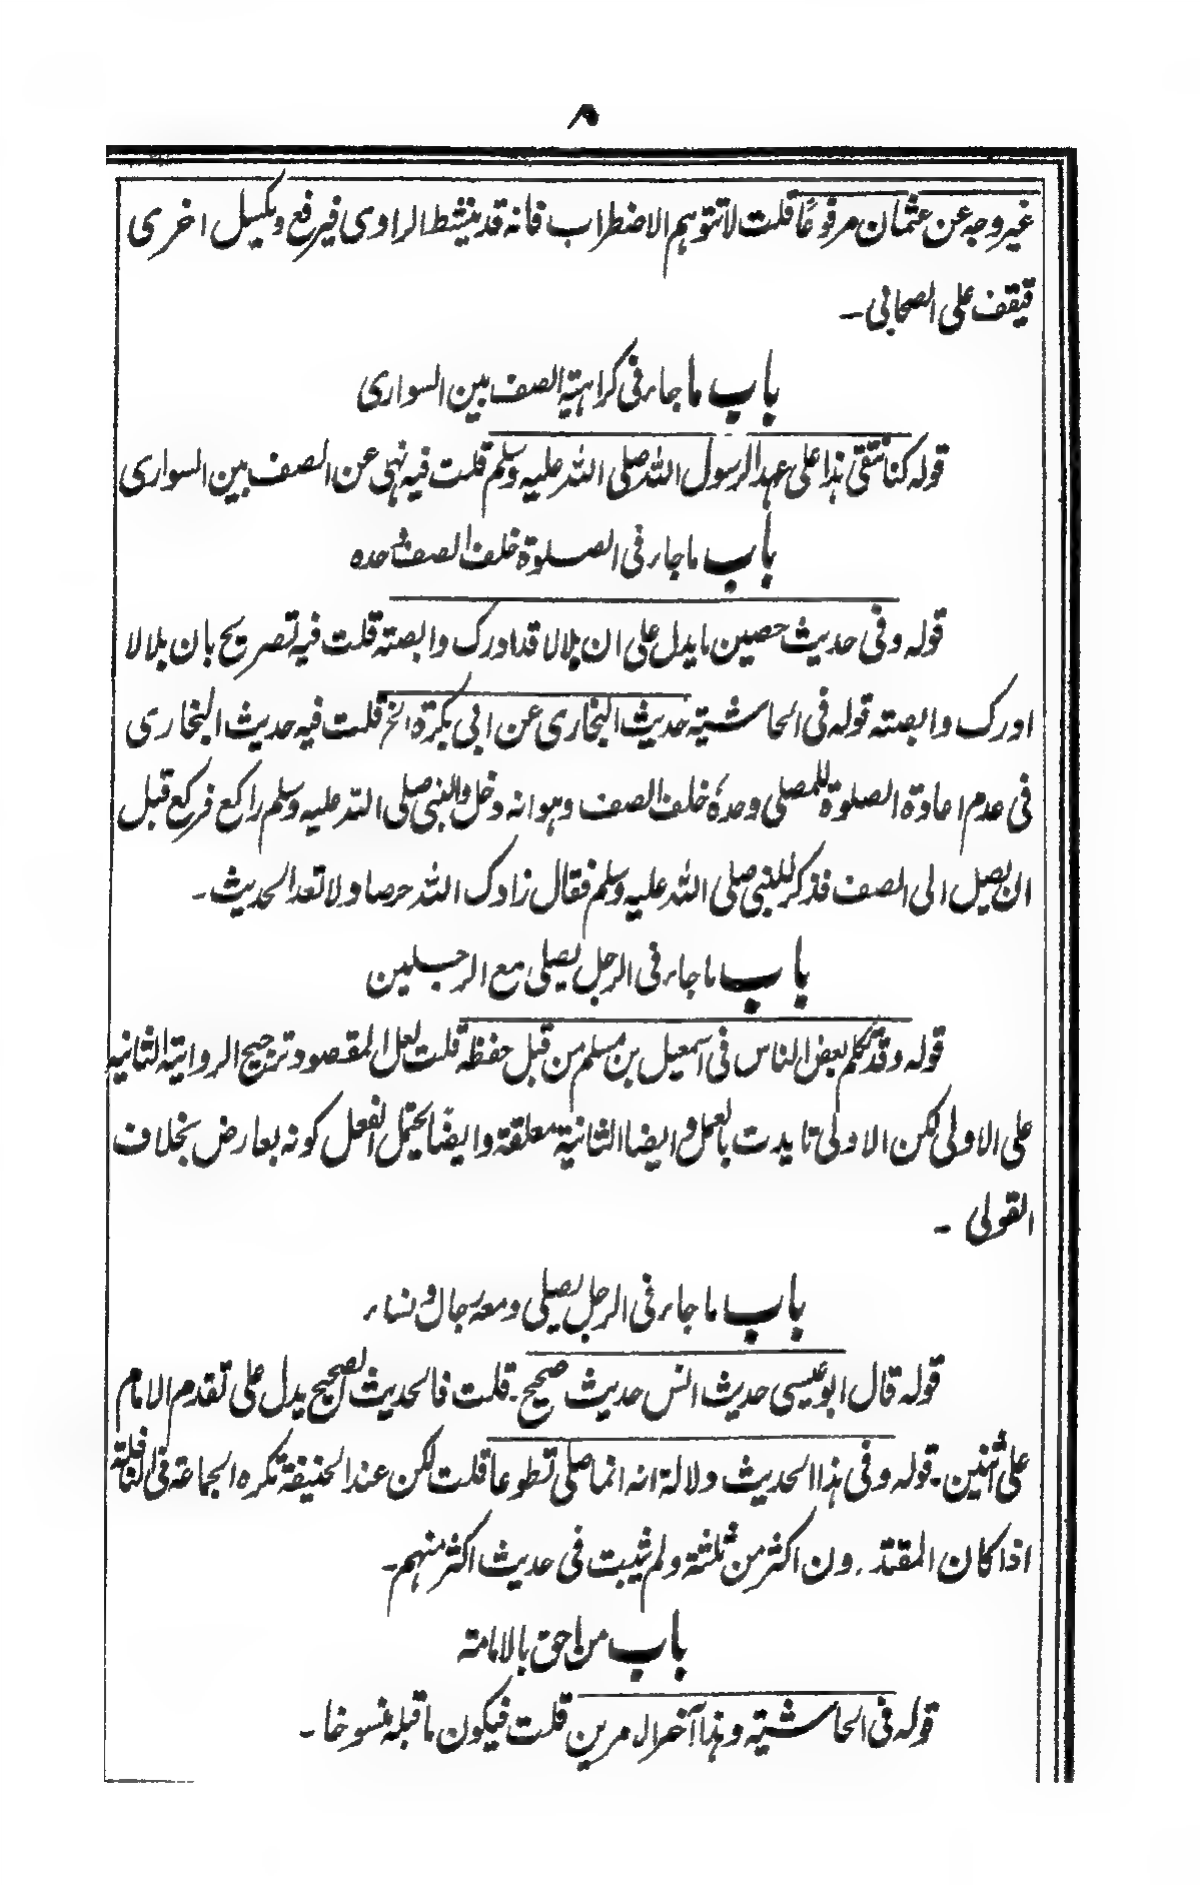 ۸
غیر وجہ عن عثمان مرفوعًا قلت لا تتوہم الاضطراب فانہ قد ینشط الراوی فیرفع ویکسل اخری
فیقف علی الصحابی ۔
باب ما جاء فی کراہیۃ الصف بین السواری
قولہ کنا نتقی ہذا علی عہد الرسول اللہ صلی اللہ علیہ وسلم قلت فیہ نہی عن الصف بین السواری
باب ما جاء فی الصلوۃ خلف الصف وحدہ
قولہ وفی حدیث حصین ما یدل علی ان ہلالا قد ادرک وابصتہ قلت فیہ تصریح بان ہلالا
ادرک وابصتہ قولہ فی الحاشیۃ حدیث البخاری عن ابی بکرۃ الخ قلت فیہ حدیث البخاری
فی عدم اعادۃ الصلوۃ للمصلی وحدہٗ خلف الصف وہو انہ دخل والنبی صلی اللہ علیہ وسلم راکع فرکع قبل
ان یصل الی الصف فذکر للنبی صلی اللہ علیہ وسلم فقال زادک اللہ حرصا ولا تعد الحدیث ۔
باب ما جاء فی الرجل یصلی مع الرجلین
قولہ وقد تکلم بعض الناس فی اسمعیل بن مسلم من قبل حفظہ قلت لعل المقصود ترجیح الروایۃ الثانیہ
علی الاولی لکن الاولی تایدت بالعمل و ایضا الثانیۃ معلقۃ وایضًا یحتمل الفعل کونہ بعارض بخلاف
القولی ۔
باب ما جاء فی الرجل یصلی ومعہ رجال و نساء
قولہ قال ابو عیسی حدیث انس حدیث صحیح ۔ قلت فالحدیث الصحیح یدل علی تقدم الامام
علی اثنین ۔ قولہ وفی ہذا الحدیث دلالۃ انہ انما صلی تطوعا قلت لکن عند الحنیفۃ تکرہ الجماعۃ فی النافلۃ
اذا کان المقتدون اکثر من ثلثۃ ولم یثبت فی حدیث اکثر منہم ۔
باب من احق بالامامتہ
قولہ فی الحاشیۃ وہذا آخر الامرین قلت فیکون ما قبلہ منسوخا ۔